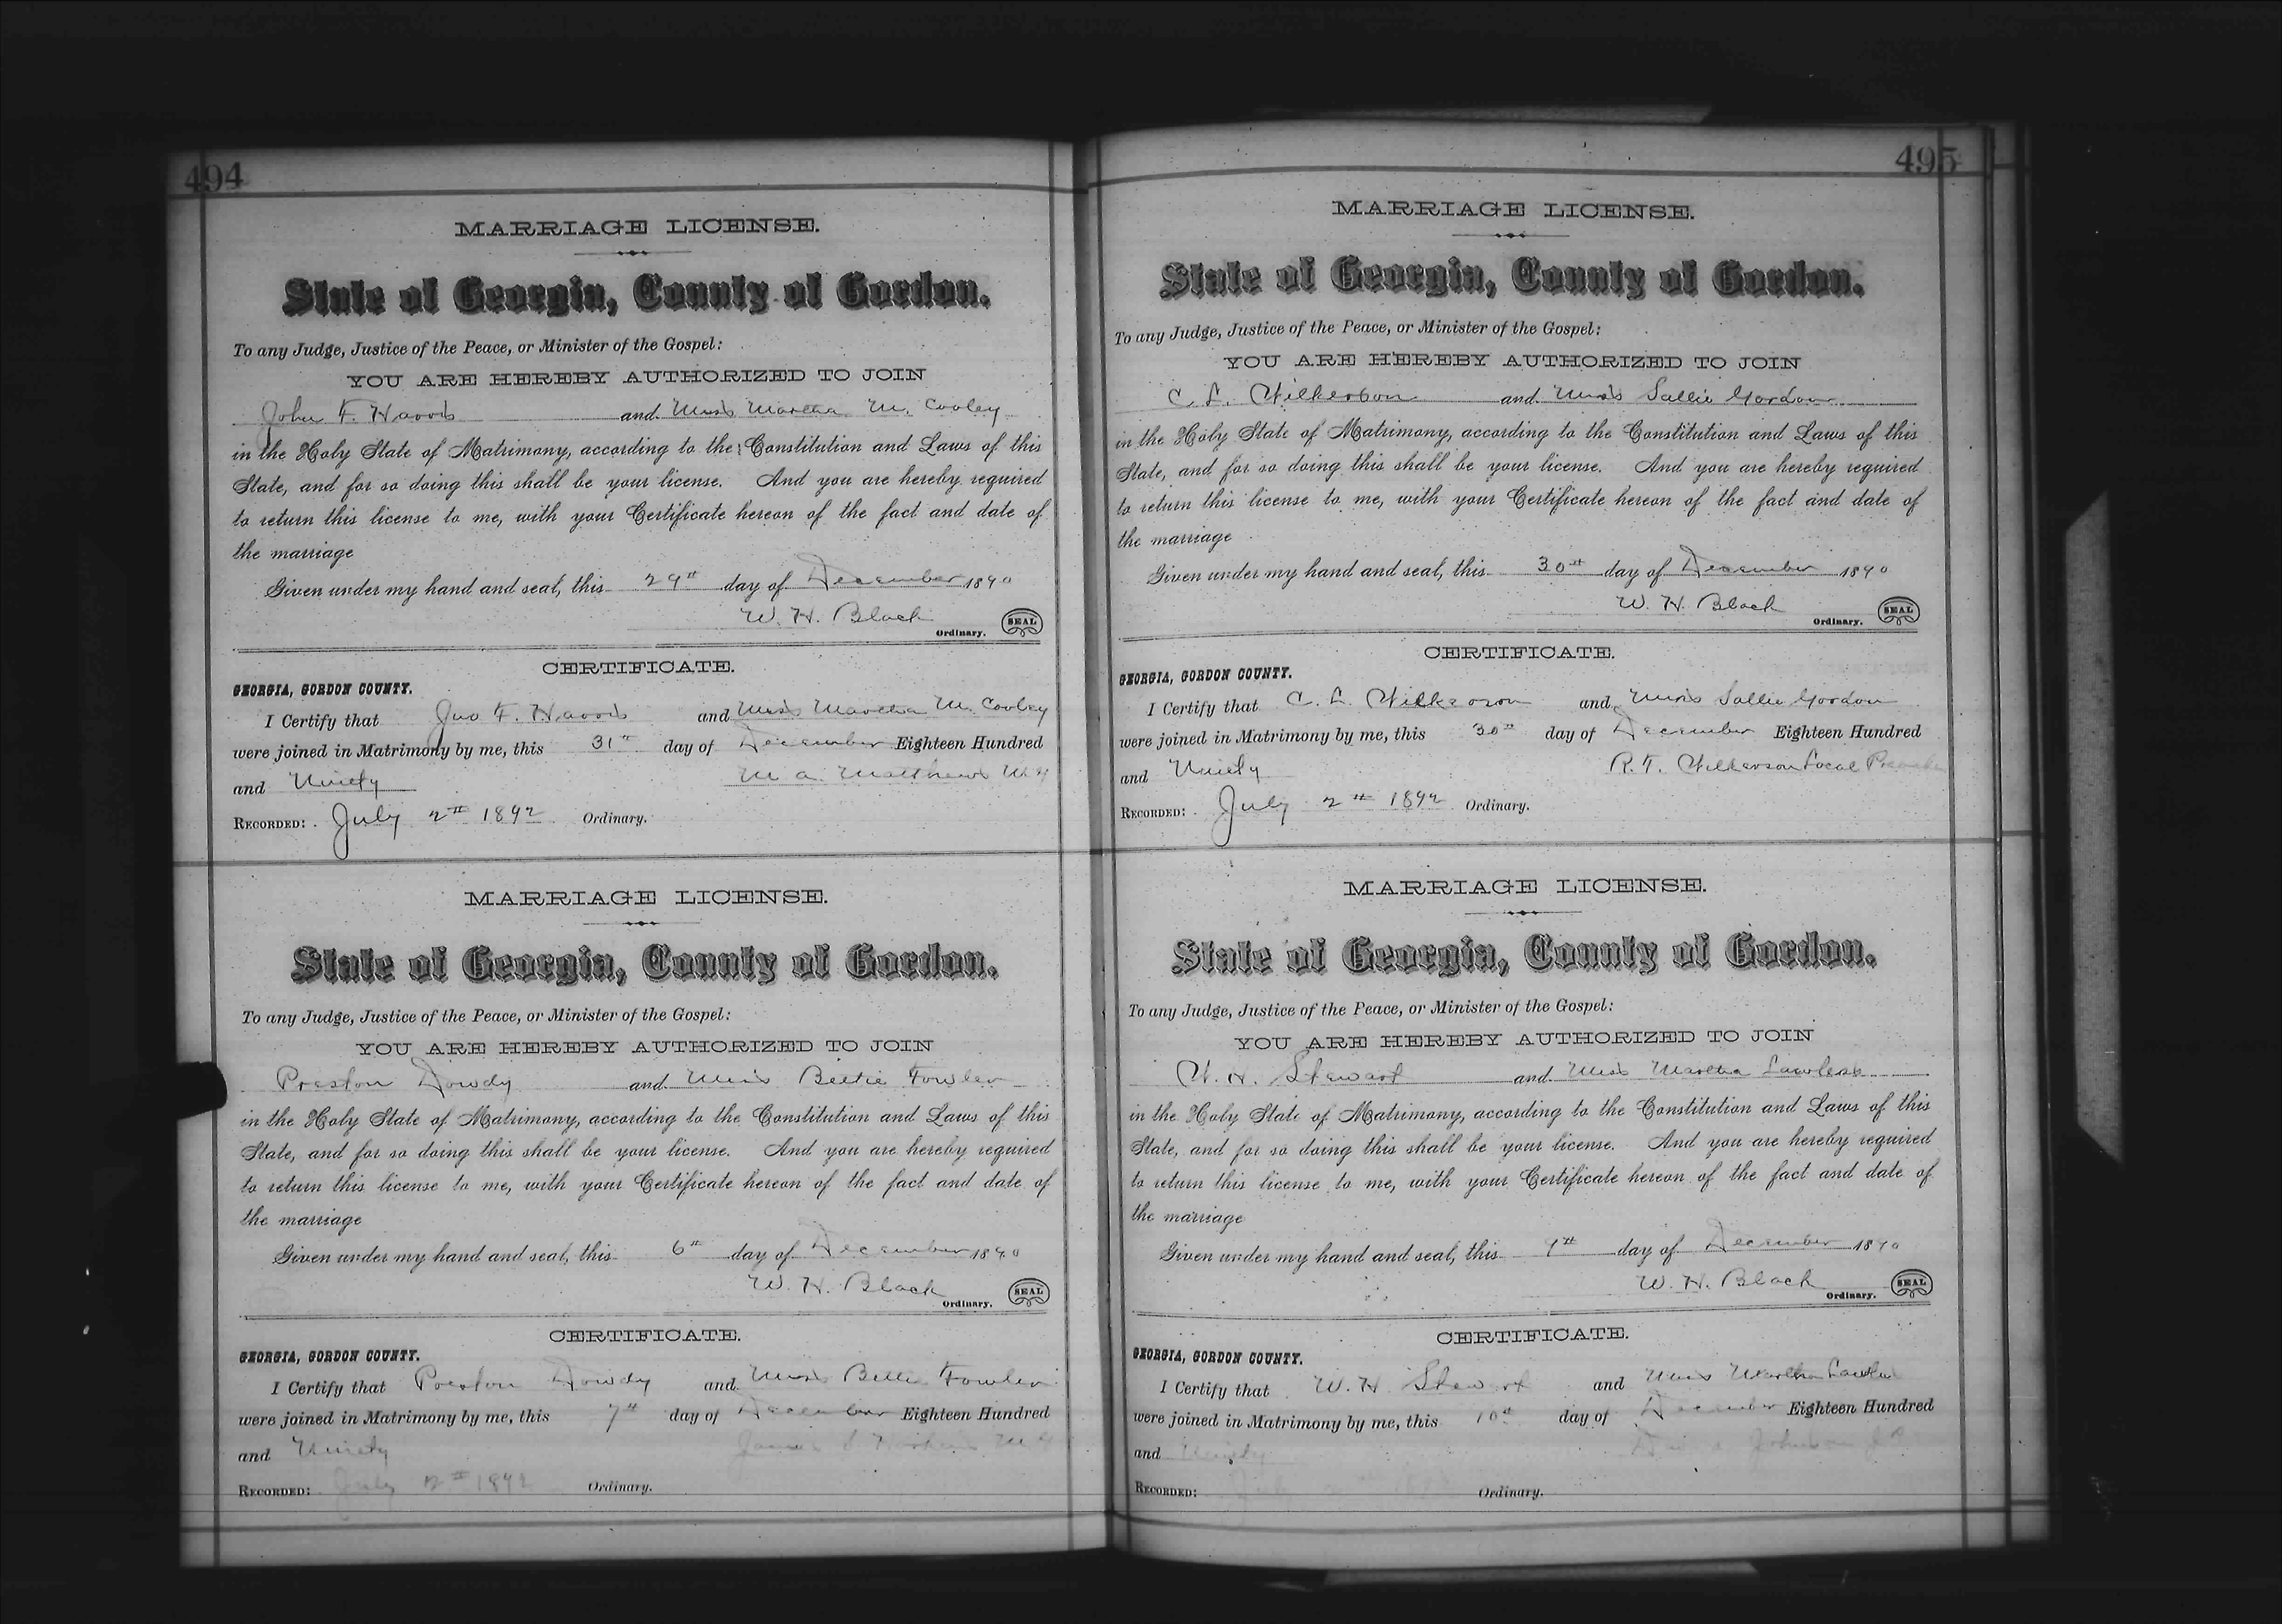 494
MARRIAGE LICENSE.
State of Georgia, County of Gordon.
To any Judge, Justice of the Peace, or Minister of the Gospel:
YOU ARE HEREBY AUTHORIZED TO JOIN
John F. and Miss Martha M. Cooley
in the Holy State of Matrimony, according to the Constitution and Laws of this
State, and for so doing this shall be your license. And you are hereby required
to return this license to me, with your Certificate hereon of the fact and date of
the marriage
Given under my hand and seal, this 29th day of December 1890
W. H. Black
Ordinary. SEAL
CERTIFICATE.
GEORGIA, GORDON COUNTY.
I Certify that Jno F. and Miss Martha M. Cooley
were joined in Matrimony by me, this 31st day of December Eighteen Hundred
and Ninety M. A. Matthews M G
RECORDED: July 2nd 1892 Ordinary.
MARRIAGE LICENSE.
State of Georgia, County of Gordon.
To any Judge, Justice of the Peace, or Minister of the Gospel:
YOU ARE HEREBY AUTHORIZED TO JOIN
Preston Dowdy and Miss Bettie Fowler
in the Holy State of Matrimony, according to the Constitution and Laws of this
State, and for so doing this shall be your license. And you are hereby required
to return this license to me, with your Certificate hereon of the fact and date of
the marriage
Given under my hand and seal, this 6th day of December 1890
W. H. Black
Ordinary. SEAL
CERTIFICATE.
GEORGIA, GORDON COUNTY.
I Certify that Preston Dowdy and Miss Bettie Fowler
were joined in Matrimony by me, this 7th day of December Eighteen Hundred
and Ninety James M G
RECORDED: July 2nd 1892 Ordinary.
495
MARRIAGE LICENSE.
State of Georgia, County of Gordon.
To any Judge, Justice of the Peace, or Minister of the Gospel:
YOU ARE HEREBY AUTHORIZED TO JOIN
C. L. Wilkerson and Miss Sallie Gordon
in the Holy State of Matrimony, according to the Constitution and Laws of this
State, and for so doing this shall be your license. And you are hereby required
to return this license to me, with your Certificate hereon of the fact and date of
the marriage
Given under my hand and seal, this 30th day of December 1890
W. H. Black
Ordinary. SEAL
CERTIFICATE.
GEORGIA, GORDON COUNTY.
I Certify that C. L. Wilkerson and Miss Sallie Gordon
were joined in Matrimony by me, this 30th day of December Eighteen Hundred
and Ninety R. T. Wilkerson Local Preacher
RECORDED: July 2nd 1892 Ordinary.
MARRIAGE LICENSE.
State of Georgia, County of Gordon.
To any Judge, Justice of the Peace, or Minister of the Gospel:
YOU ARE HEREBY AUTHORIZED TO JOIN
W. H. Stewart and Miss Martha Lawless
in the Holy State of Matrimony, according to the Constitution and Laws of this
State, and for so doing this shall be your license. And you are hereby required
to return this license to me, with your Certificate hereon of the fact and date of
the marriage
Given under my hand and seal, this 9th day of December 1890
W. H. Black
Ordinary. SEAL
CERTIFICATE.
GEORGIA, GORDON COUNTY.
I Certify that W. H. Stewart and Miss Martha Lawless
were joined in Matrimony by me, this 10th day of December Eighteen Hundred
and Ninety Johnson J P
RECORDED: July Ordinary.